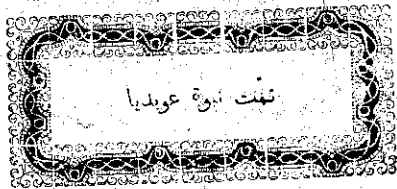 تمّت نبوة عوبديا